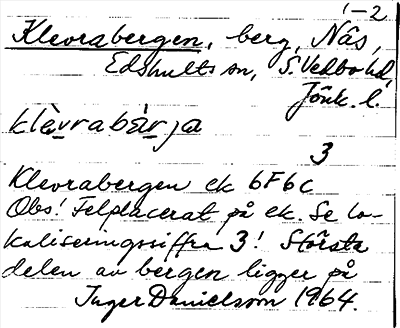 1-2
Klevrabergen, berg, Näs,
Edshults sn, S. Vedbo hd,
Jönk. l.
klèvrabær̀ja
3
Klevrabergen ek 6F6c
Obs! Felplacerat på ek. Se lo-
kaliseringssiffra 3! Största
delen av bergen ligger på
Inger Danielsson 1964.